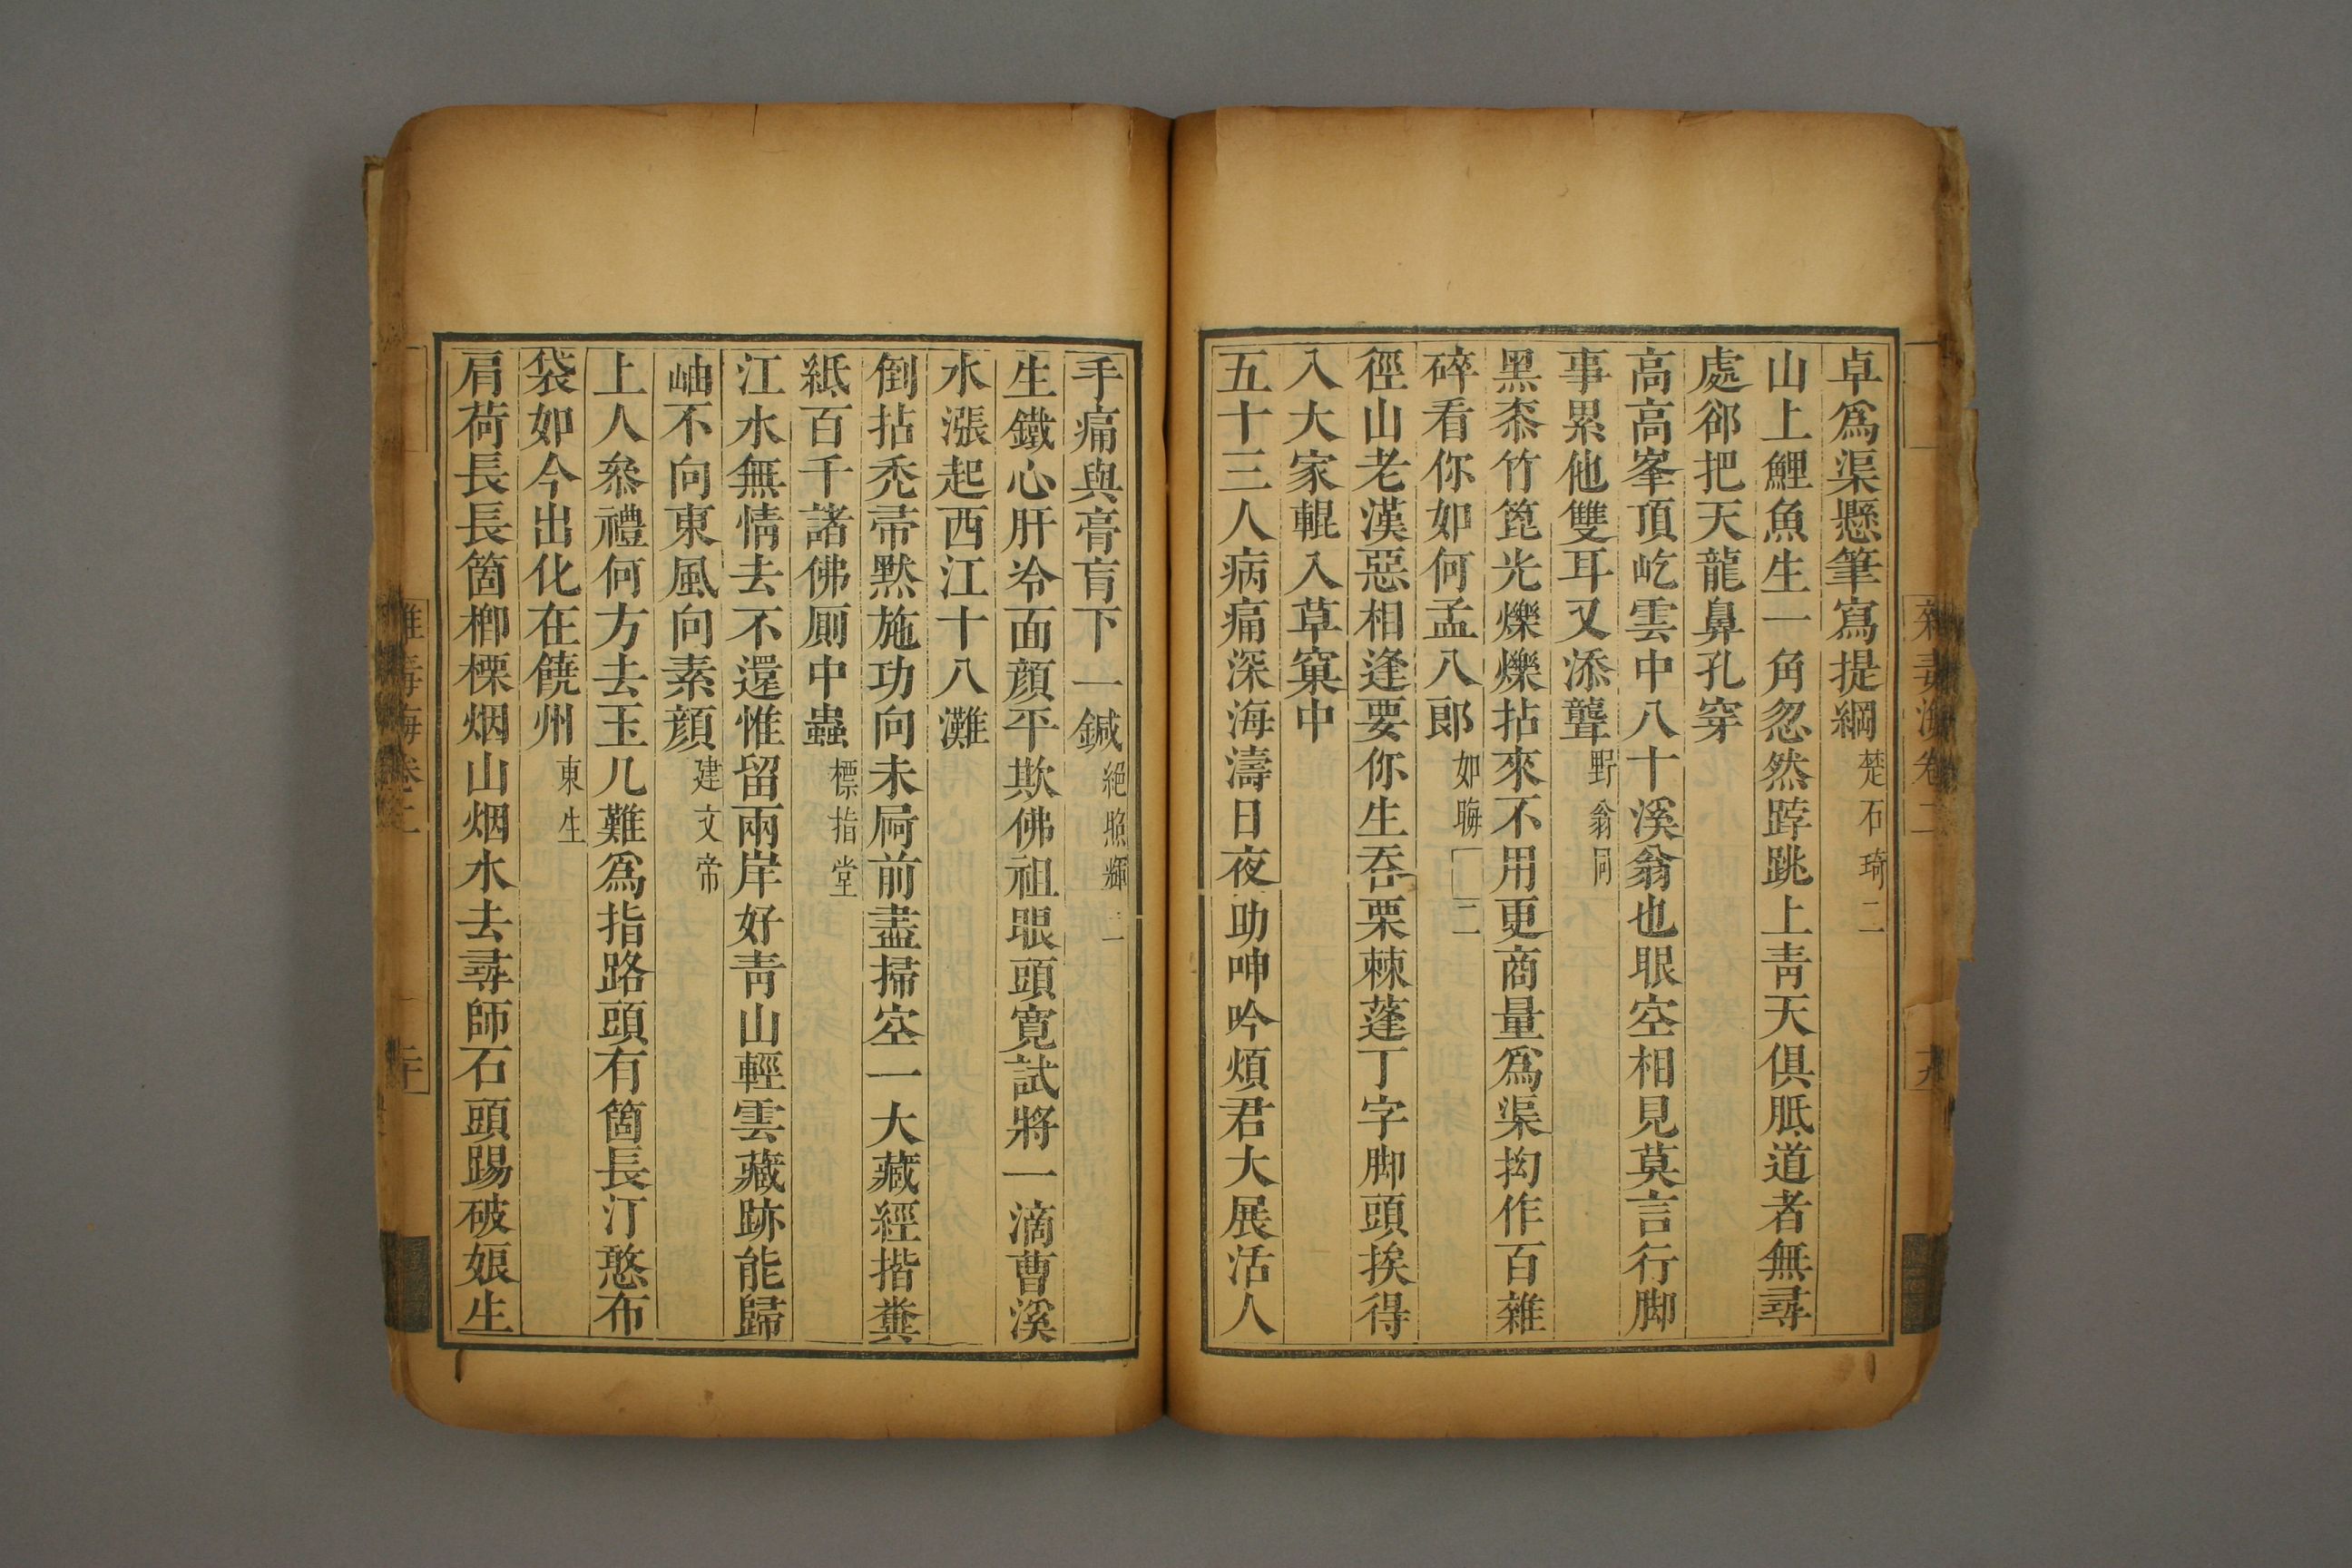 卓爲渠懸筆寫提綱楚石琦二
山上鯉魚生一角忽然踍跳上靑天俱胝道者無尋
處郤把天龍鼻孔穿
高高峯頂屹雲中八十溪翁也眼空相見莫言行脚
事累他雙耳又添聾野翁同
黑桼竹篦光爍爍拈來不用更商量爲渠抝作百雜
碎看你如何孟八郎如聨二
徑山老漢惡相逢要你生吞栗棘蓬丁字脚頭挨得
入大家輥入草窠中
五十三人病痛深海濤日夜助呻吟煩君大展活人
手痛與膏肓下一鍼絕照輝二
生鐵心肝冷面顏平欺佛祖眼頭寬試將一滴曹溪
水漲起西江十八灘
倒拈禿帚黙施功向未屙前盡掃空一大藏經揩糞
紙百千諸佛厠中蟲標指堂
江水無情去不還惟留兩岸好靑山輕雲藏跡能歸
岫不向東風向素顏建文帝
上人叅禮何方去玉几難爲指路頭有箇長汀憨布
袋如今出化在饒州東生
肩荷長長箇楖㮚烟山烟水去尋師石頭踢破娘生